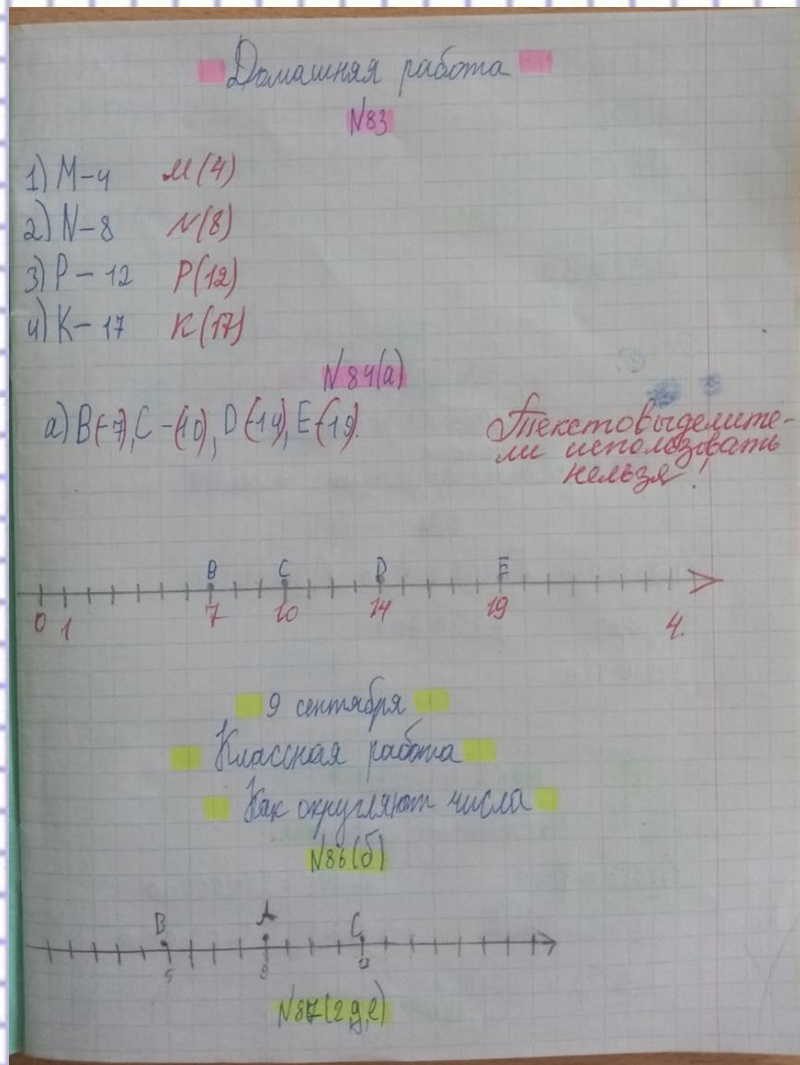 Домашняя работа
№83
1) М-4 М(4)
2) N-8 N(8)
3) Р-12 Р(12)
4) К-17 К(17)
№84(а)
а) В(-7), С-(10), D(-14), Е-(19).
Текстовыделите-
ли использовать
нельзя.
В С D Е
0 1 7 10 14 19
9 сентября
Классная работа
Как округляют числа
№86(б)
В А С
№87(2,д,е)